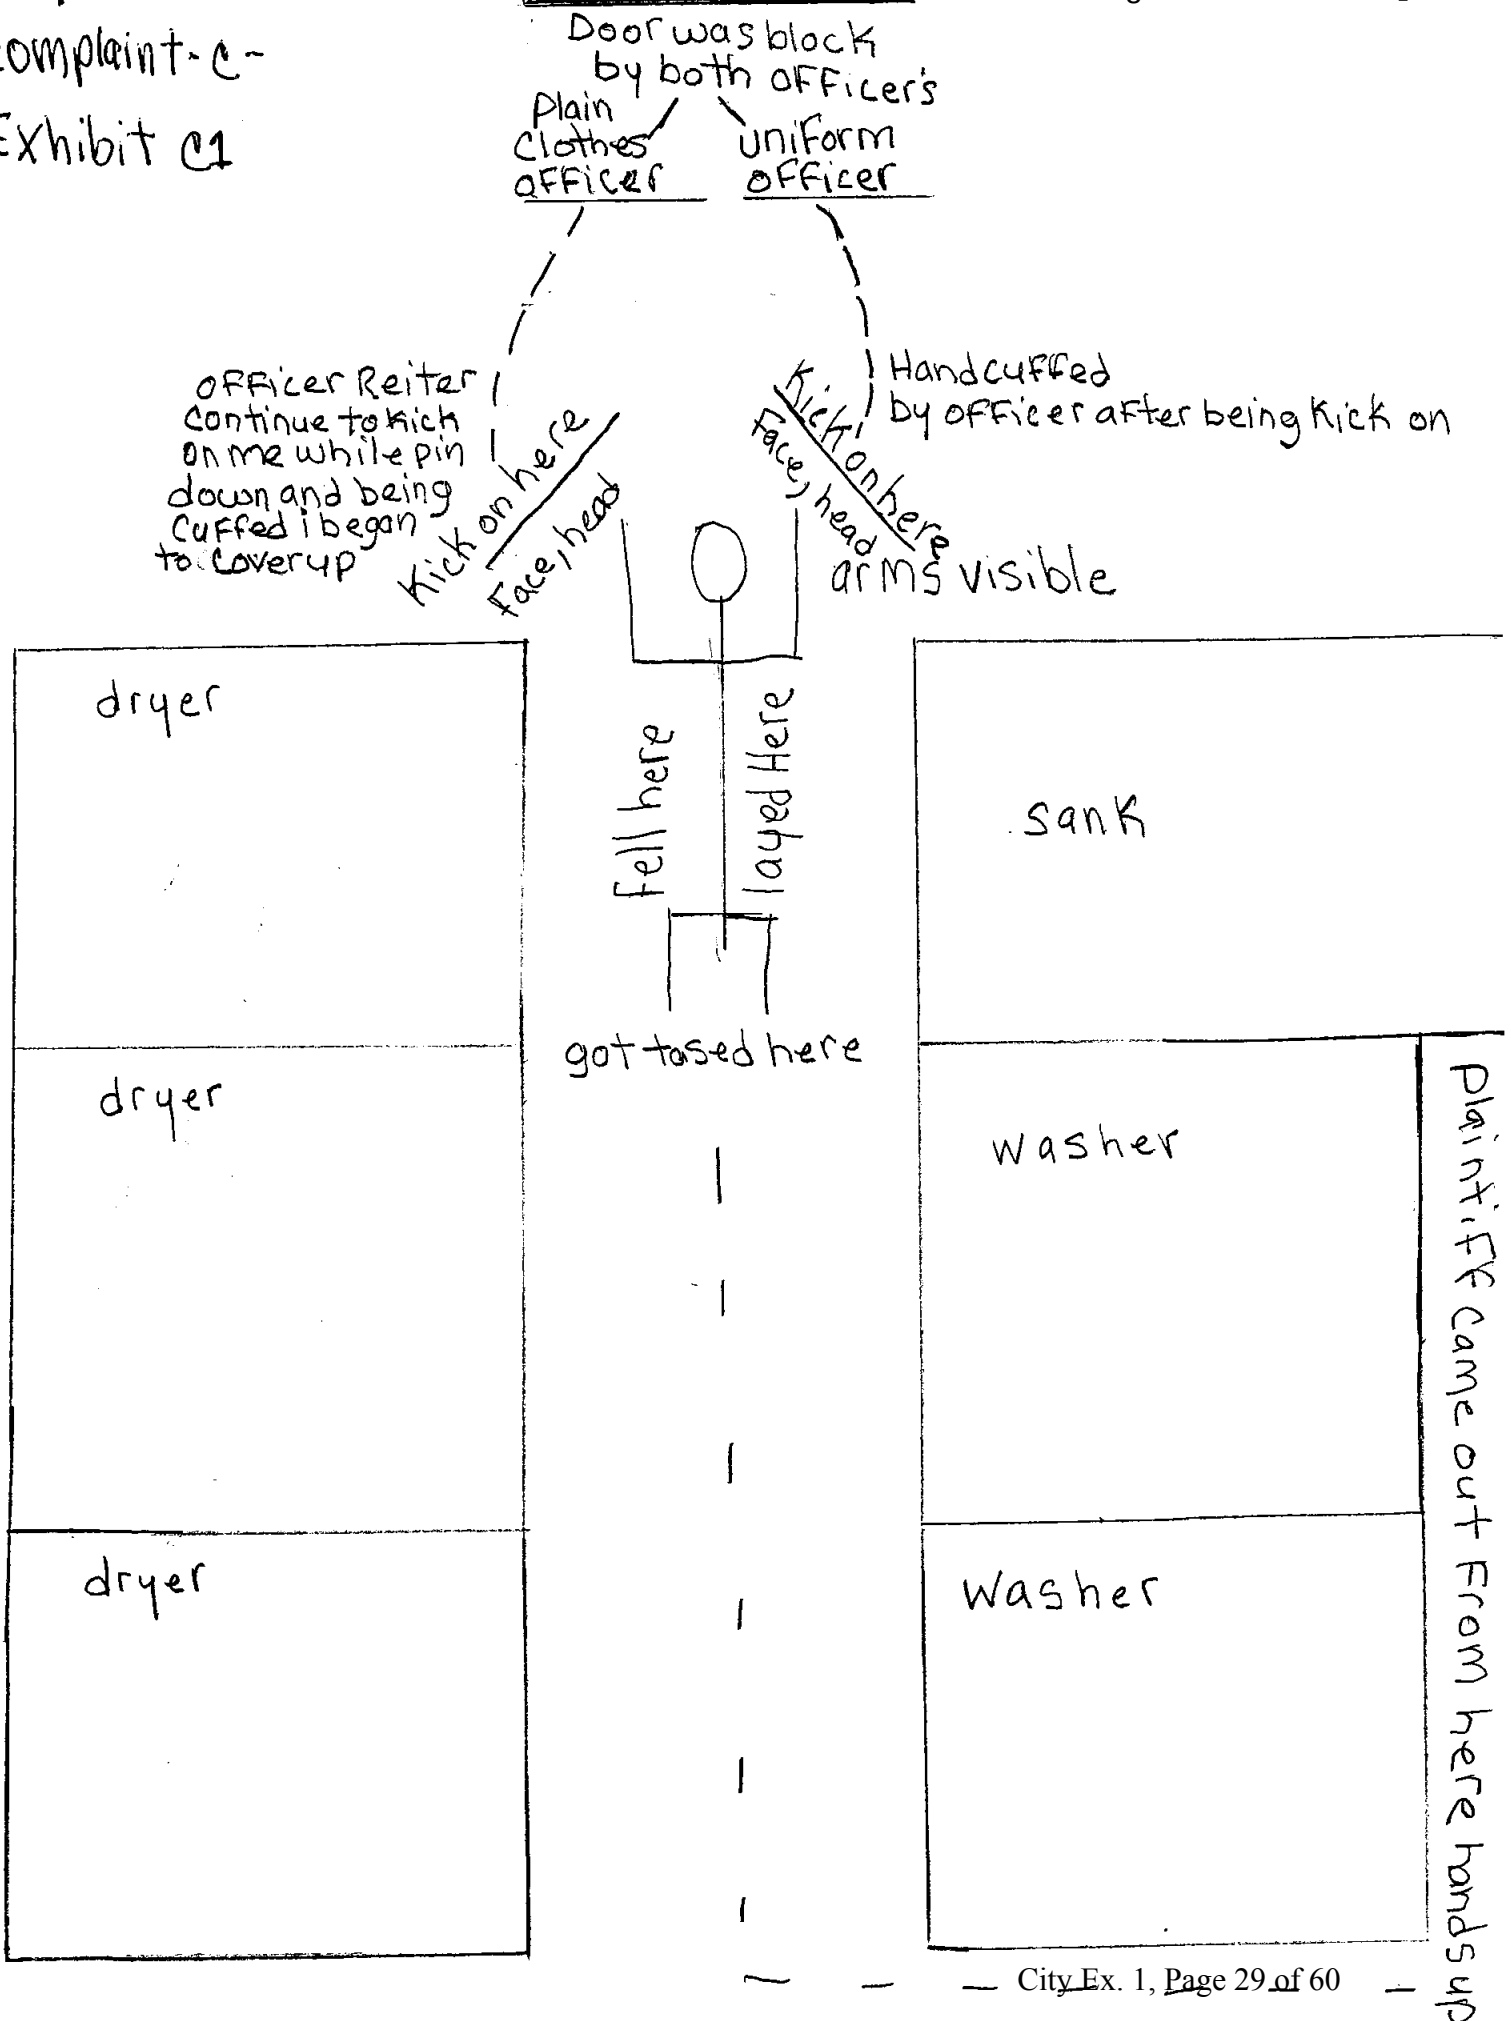 complaint-C-
Exhibit C1
Door was block
by both officer's
Plain
Clothes
officer
uniform
officer
officer Reiter
continue to kick
on me while pin
down and being
cuffed i began
to cover up
Kick on here
Face, head
Kick on here
Face, head
Handcuffed
by officer after being kick on
arms visible
dryer
fell here
layed Here
sank
got tased here
dryer
washer
Plaintiff came out from here hands up
dryer
Washer
City Ex. 1, Page 29 of 60